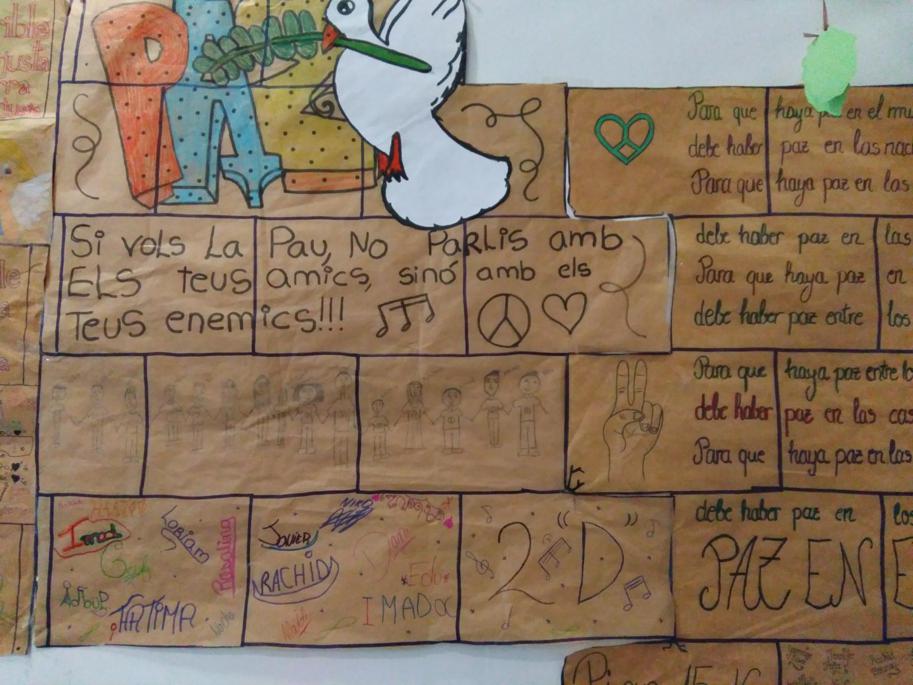 PAZ
Si vols La Pau, No Parlis amb
ELS teus amics, sinó amb els
Teus enemics!!!
Para que haya paz en el mu
debe haber paz en las nac
Para que haya paz en las
debe haber paz en las
Para que haya paz en
debe haber paz entre los
Para que haya paz entre lo
debe haber paz en las cas
Para que haya paz en las
debe haber paz en los
PAZ EN E
Imad
Loriam
Rosalina
FATIMA
Javier
RACHID
Edu
IMADOC
2 "D"